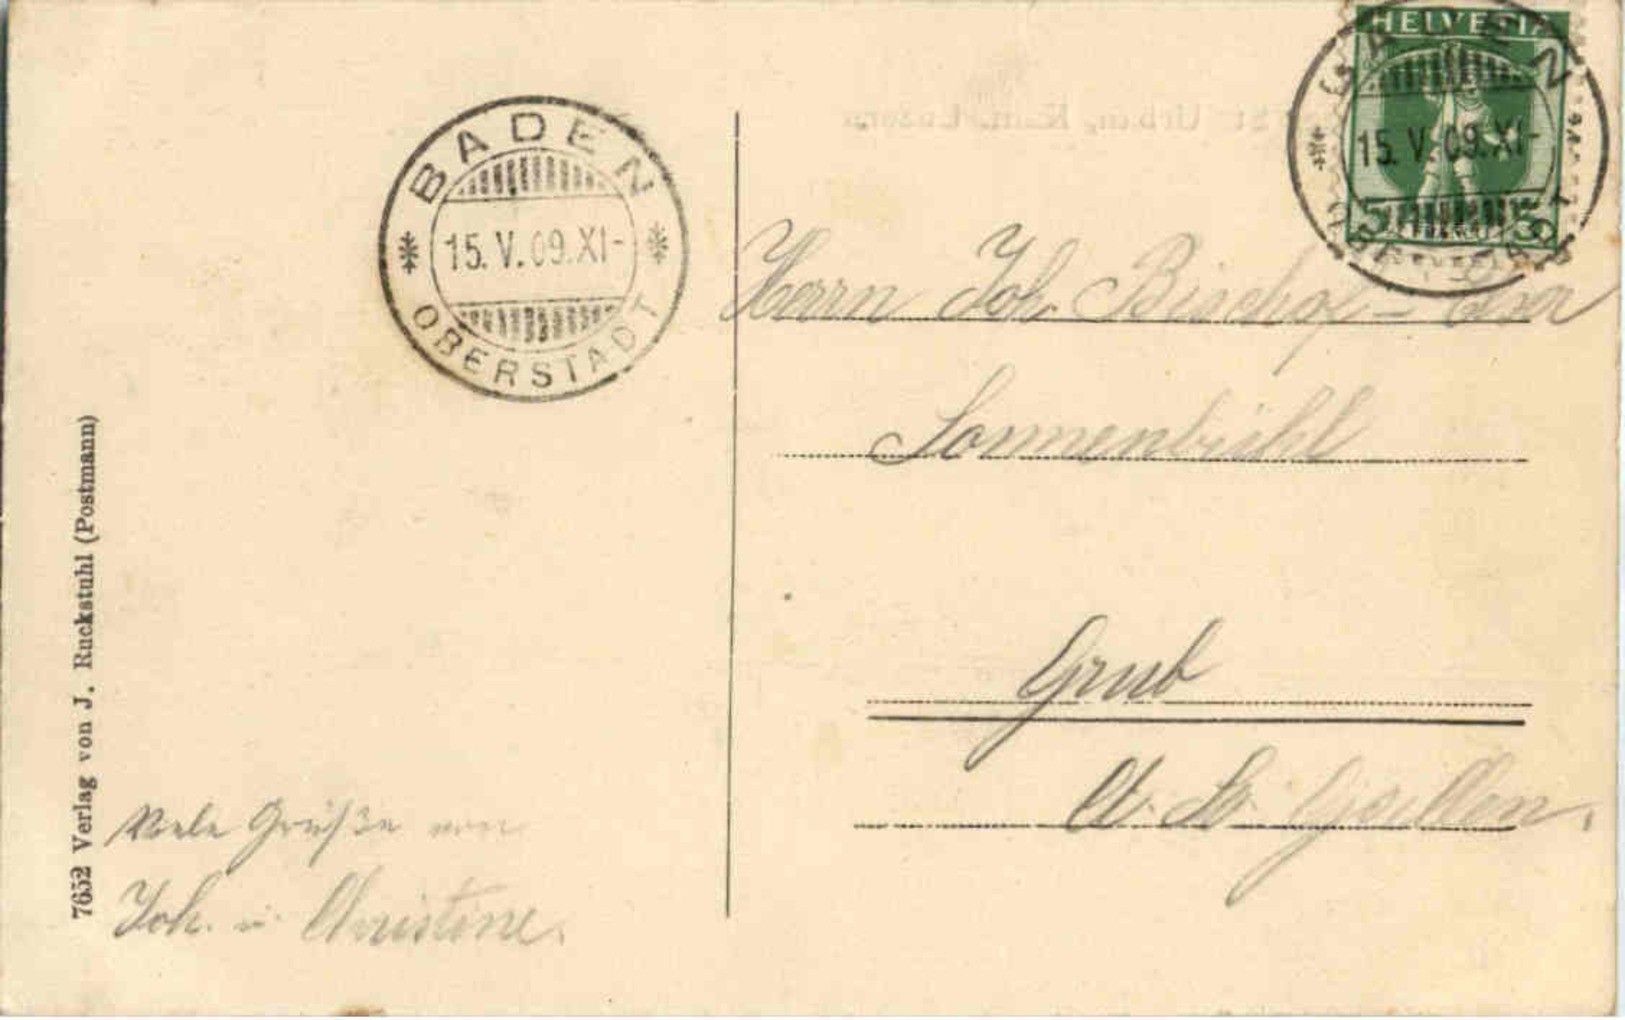 HELVETIA
5 5
BADEN
15. V. 09. XI-
OBERSTADT
BADEN
15. V. 09. XI-
OBERSTADT
Herrn Joh. Bischof -
Sonnenbühl
Grub
Ct. St. Gallen.
Viele Grüße von
Joh. u. Christine.
7652 Verlag von J. Ruckstuhl (Postmann)